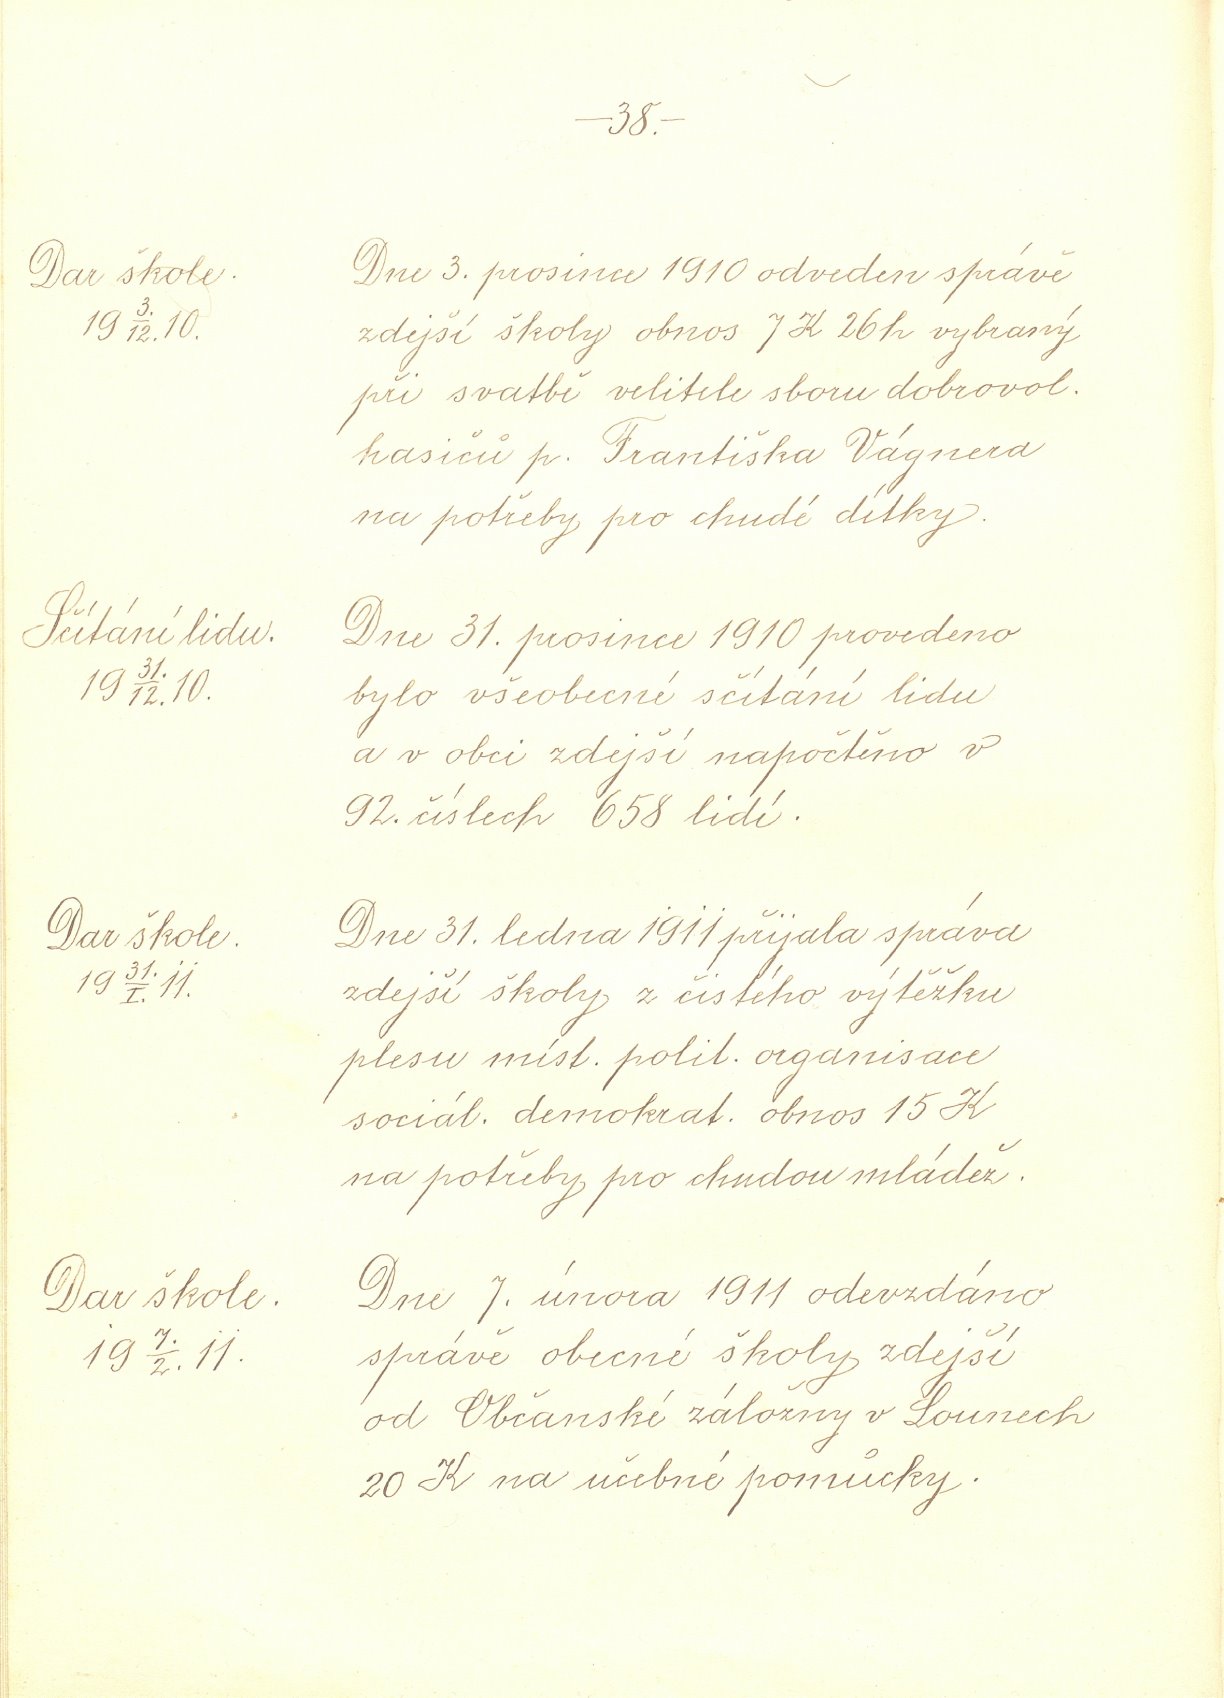 —38.—
Dar škole.
19 3./12. 10.
Dne 3. prosince 1910 odveden správě
zdejší školy obnos 7 K 26 h vybraný
při svatbě velitele sboru dobrovol.
hasičů p. Františka Vágnera
na potřeby pro chudé dítky.
Sčítání lidu.
19 31./12. 10.
Dne 31. prosince 1910 provedeno
bylo všeobecné sčítání lidu
a v obci zdejší napočtěno v
92. číslech 658 lidí.
Dar škole.
19 31./I. 11.
Dne 31. ledna 1911 přijala správa
zdejší školy z čistého výtěžku
plesu míst. polit. organisace
sociál. demokrat. obnos 15 K
na potřeby pro chudou mládež.
Dar škole.
19 7./2. 11.
Dne 7. února 1911 odevzdáno
správě obecné školy zdejší
od Občanské záložny v Lounech
20 K na učebné pomůcky.